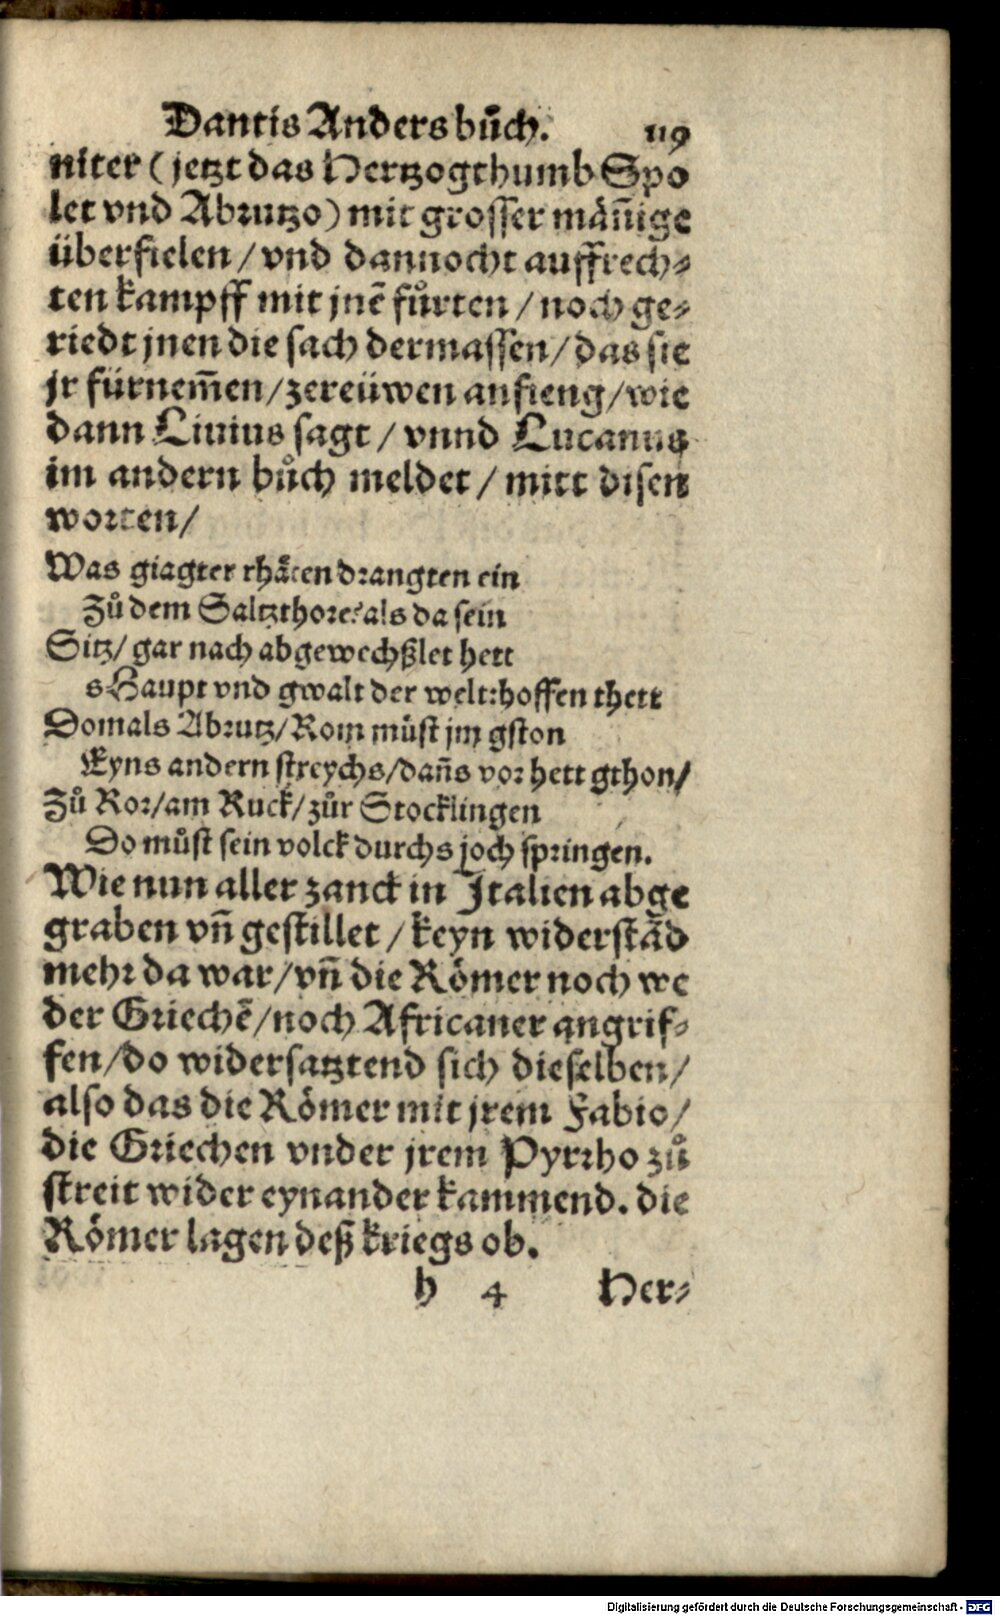 Dantis Anders bůch. 119
niter (jetzt das Hertzogthumb Spo
let vnd Abrutzo) mit grosser män̄ige
überfielen / vnd dannocht auffrech⸗
ten kampff mit jnē fůrten / noch ge⸗
riedt jnen die sach dermassen / das sie
jr fürnem̄en / zereüwen anfieng / wie
dann Liuius sagt / vnnd Lucanus
im andern bůch meldet / mitt disen
worten /
Was giagter rhäten drangten ein
Zů dem Saltzthore? als da sein
Sitz / gar nach abgewechßlet hett
s Haupt vnd gwalt der welt: hoffen thett
Domals Abrutz / Rom můst jm gston
Eyns andern streychs / dan̄s vor hett gthon /
Zů Ror / am Ruck / zůr Stocklingen
Do můst sein volck durchs joch springen.
Wie nun aller zanck in Italien abge
graben vn̄ gestillet / keyn widerstād
mehr da war / vn̄ die Römer noch we
der Griechē / noch Africaner angrif⸗
fen / do widersatztend sich dieselben /
also das die Römer mit jrem Fabio /
die Griechen vnder jrem Pyrrho zů
streit wider eynander kammend. die
Römer lagen deß kriegs ob.
h 4 Her⸗
Digitalisierung gefördert durch die Deutsche Forschungsgemeinschaft - DFG